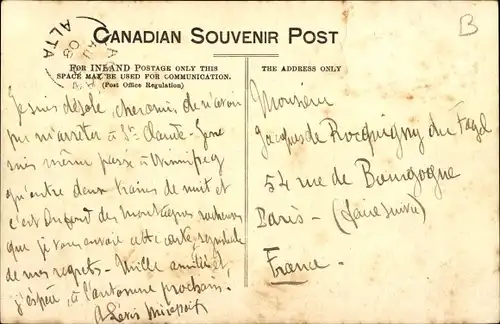 B
CANADIAN SOUVENIR POST
ALTA
08
FOR INLAND POSTAGE ONLY THIS
SPACE MAY BE USED FOR COMMUNICATION.
(Post Office Regulation)
THE ADDRESS ONLY
Je suis désolé, cher ami, de n'avoir
pu m'arrêter à Ste Claude - Je ne
suis même passé à Winnipeg
qu'entre deux trains de nuit et
c'est du fond des montagnes rocheuses
que je vous envoie cette carte
de mes regrets - Mille amitiés et,
j'espère, à l'automne prochain.
A Lévis Mirepoix
Monsieur
Jacques de Rocquigny du Fayel
54 rue de Bourgogne
Paris - (faire suivre)
France -